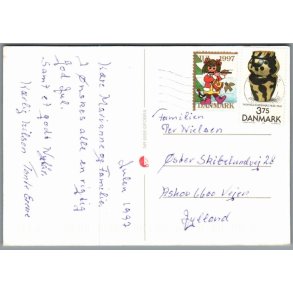 Julen 1997
Kære Marianne og Familien
I Ønskes alle en rigtig
god Jul.
Samt et godt Nytår.
Kærlig hilsen Tante Grethe
JUL 1997
DANMARK
3,75
DANMARK
Familien
Per Nielsen
Øster Skibelundvej 28
Askov 6600 Vejen
Jylland